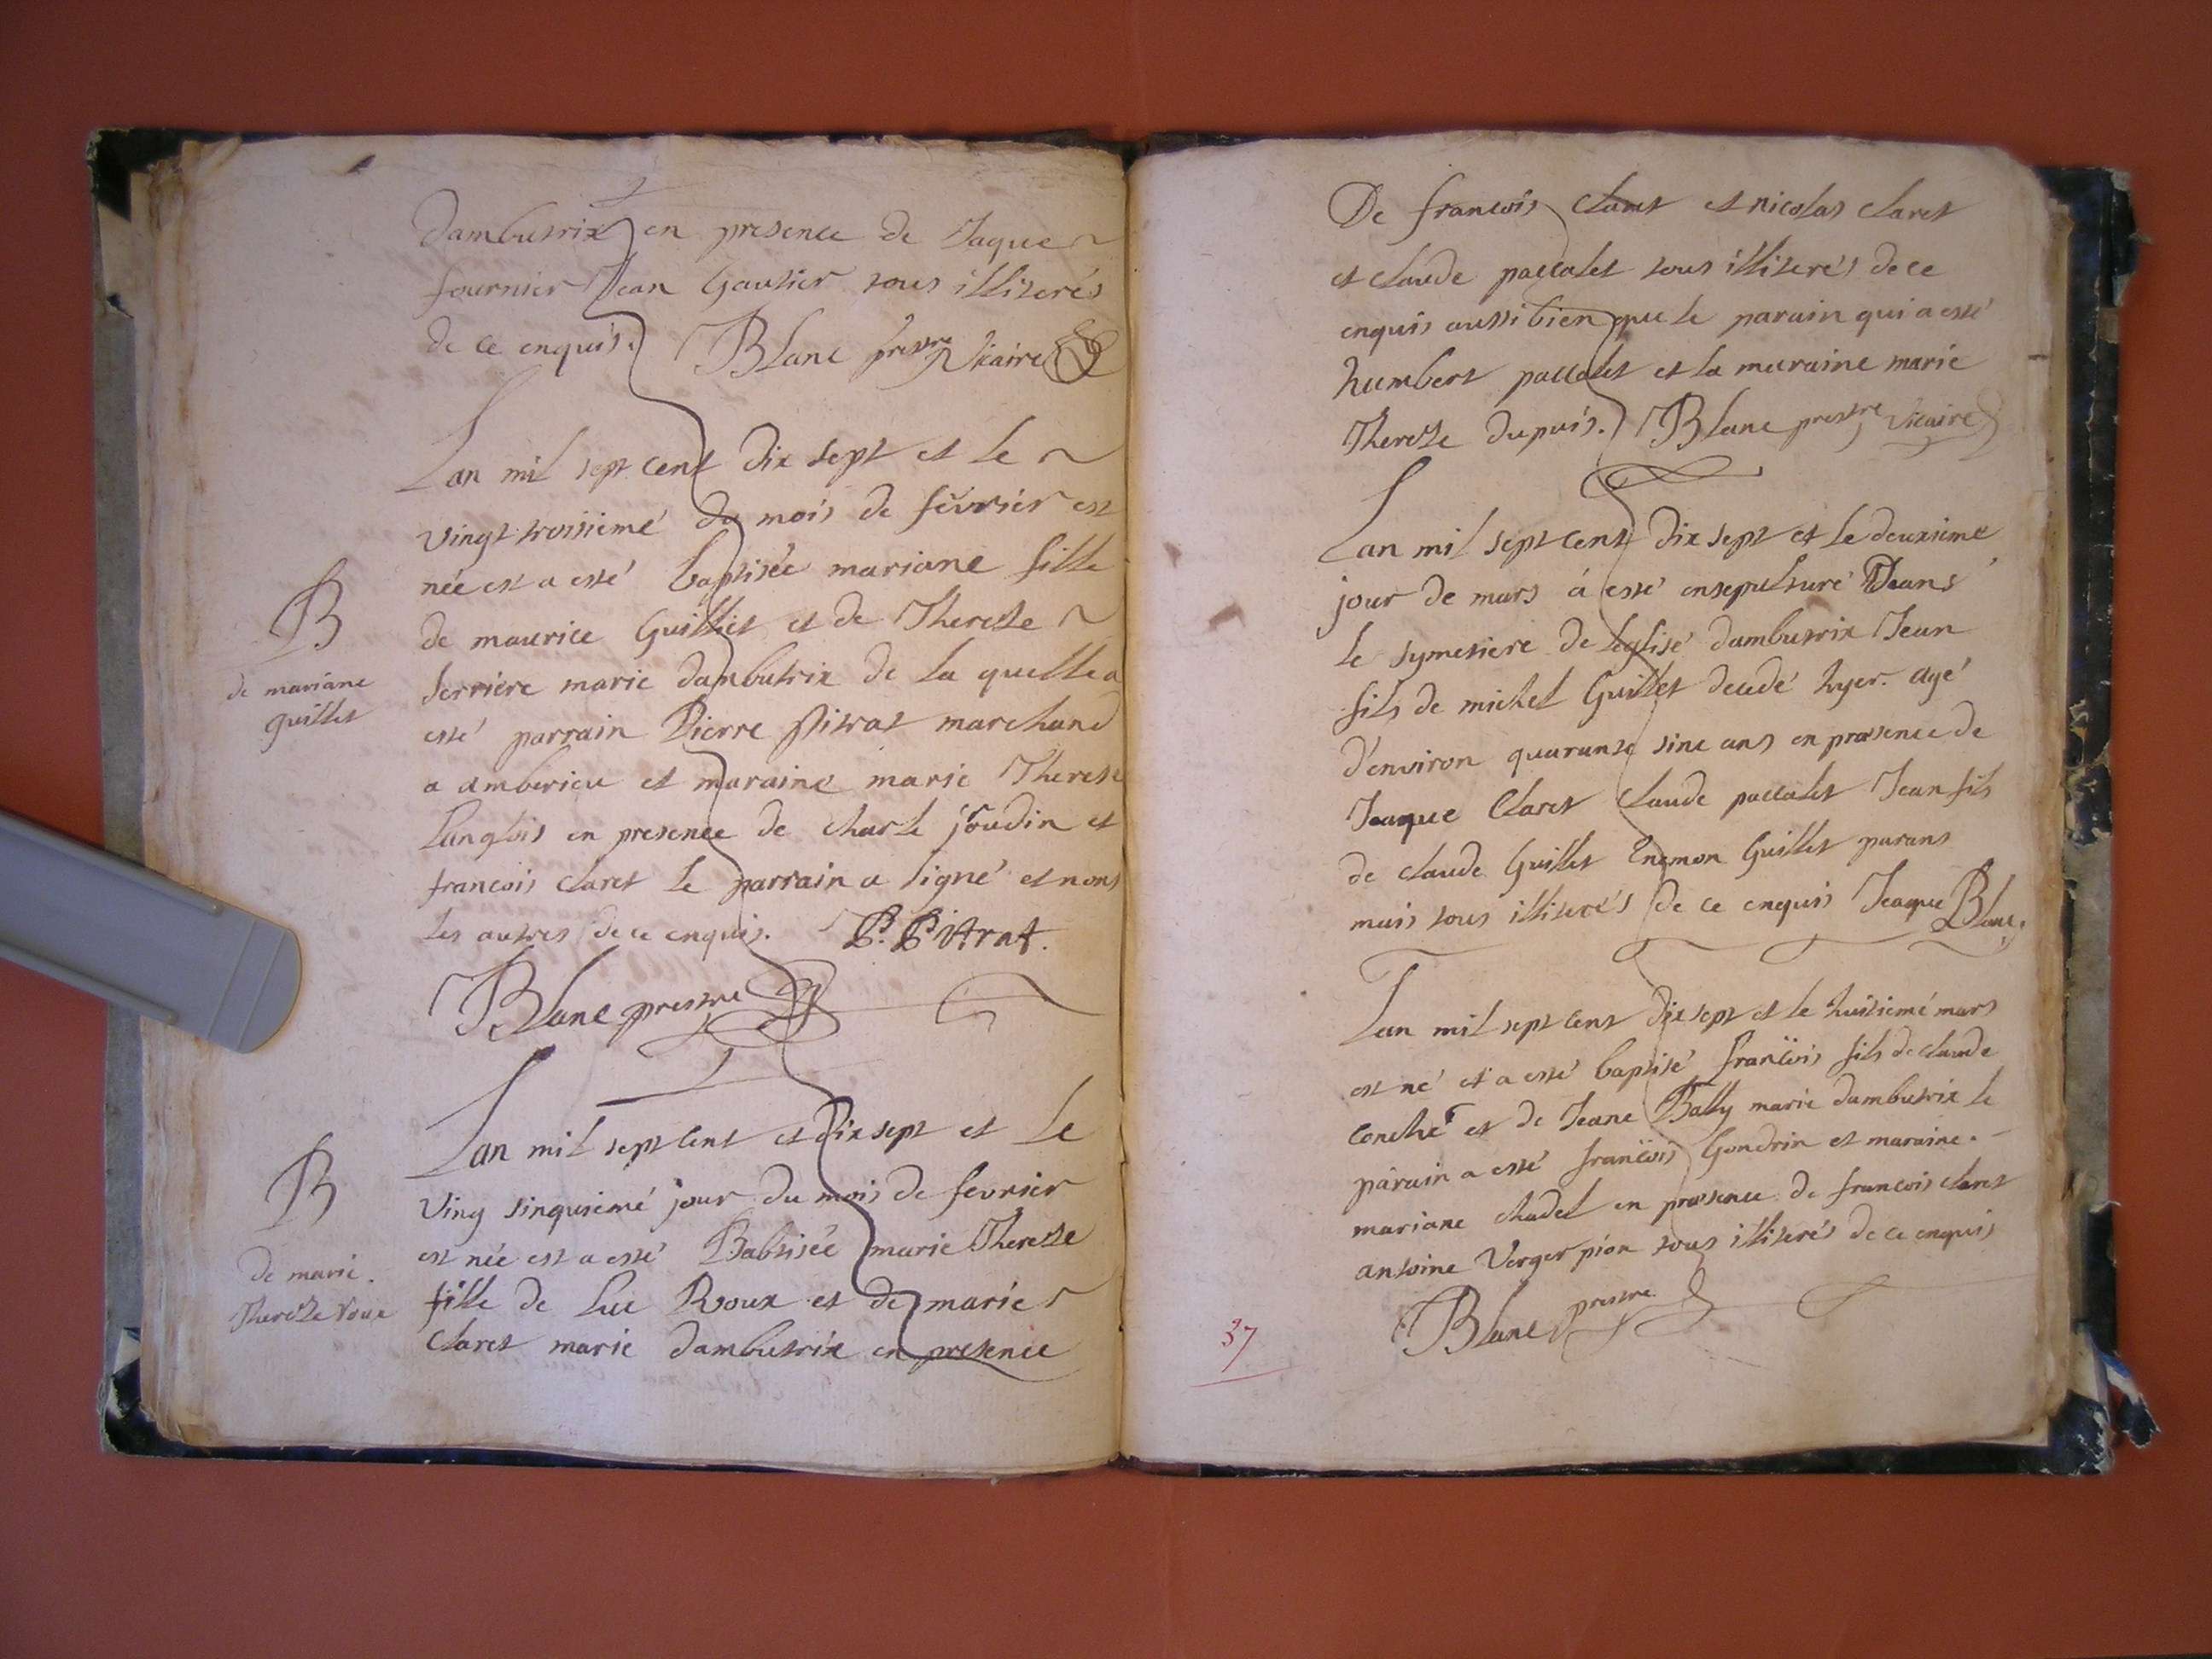 dambutrix en presence de Jaque
fournier Jean Gautier tous illiterés
de ce enquis. Blanc prestre Vicaire
Lan mil sept cent dix sept et le
vingt troisiemé du mois de fevrier est
née est a esté baptisée mariane fille
B
de mariane
guillet
de maurice Guilliet et de Thereze
Serriere marie dambutrix de la quelle a
esté parrain Pierre Pitrat marchand
a amberieu et maraine marie Therese
Langlois en presence de charle joudin et
francois claret le parrain a signé et nons
les autres de ce enquis. P. Pitrat.
Blanc prestre
Lan mil sept cent et dix sept et Le
Ving sinquiemé jour du mois de fevrier
B
de marie.
Thereze roux
est née est a esté Babtisée marie Thereze
fille de Luc Roux et de marie
Claret marie dambutrix en presence
De francois claret et nicolas claret
et claude paccalet tous illiterés de ce
enquis aussi bien que le parain qui a esté
humbert paccalet et la maraine marie
Thereze dupuis. Blanc prestre Vicaire
Lan mil sept cent dix sept et le deuxieme
jour de mars á esté ensepulturé Deans
le symetiere de leglise dambutrix Jean
fils de michel Guillet decedé hyer. agé
d'environ quarante sinc ans en praesence de
Jeaque Claret Claude paccalet Jean fils
de claude Guillet Enemon Guillet parans
mais tous illiterés de ce enquis Jeaque Blanc.
Lan mil sept cent dix sept et le huitiemé mars
est né et a esté baptisé francois fils de claude
conché et de Jeane Bally marie dambutrix le
párain a esté francois Gondrin et maraine.
mariane chadel en praesence de francois claret
antoine Verger pion tous illiterés de ce enquis
Blanc prestre
37